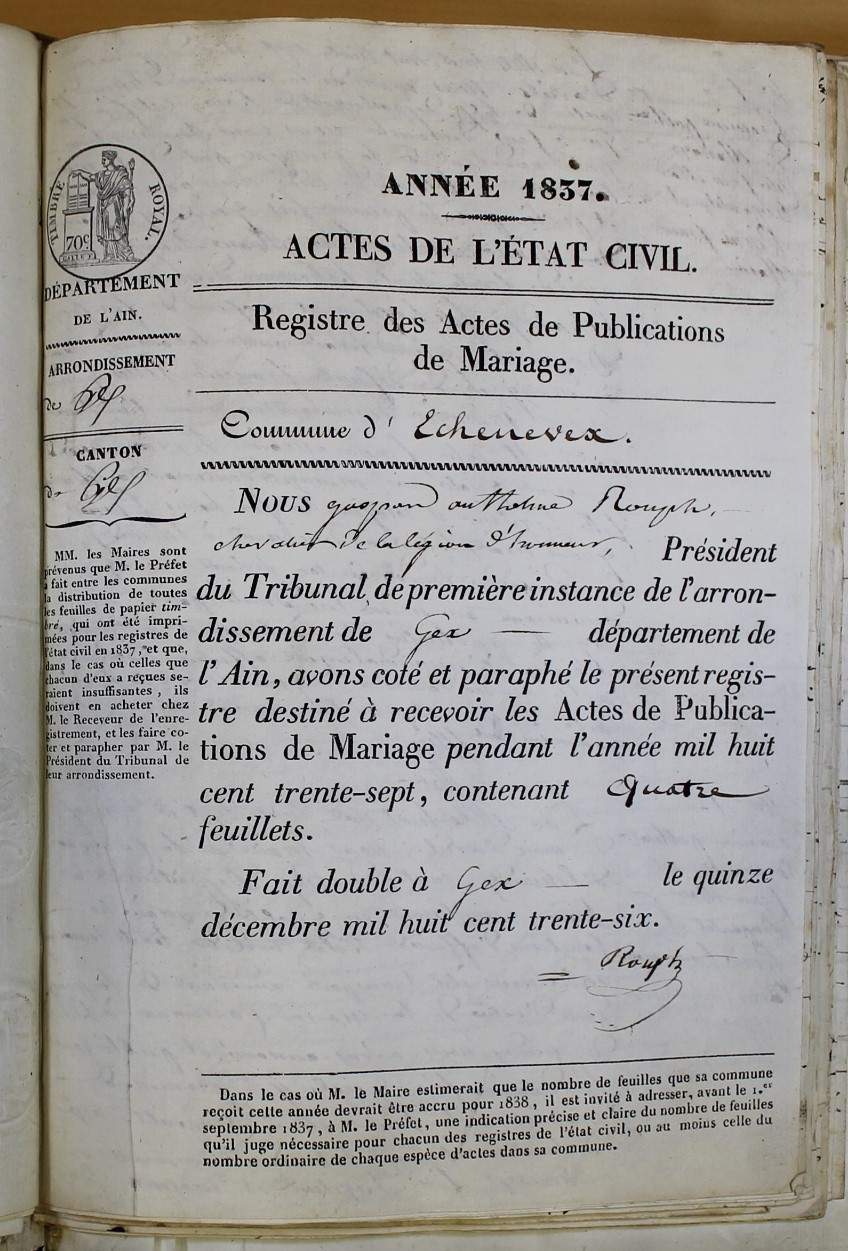 ANNÉE 1837.
ACTES DE L'ÉTAT CIVIL.
Registre des Actes de Publications
de Mariage.
Commune d' Echenevex.
TIMBRE ROYAL.
70c
DÉPARTEMENT
DE L'AIN.
ARRONDISSEMENT
de Gex
CANTON
de Gex
MM. les Maires sont
prévenus que M. le Préfet
a fait entre les communes
la distribution de toutes
les feuilles de papier tim-
bré, qui ont été impri-
mées pour les registres de
l'état civil en 1837, et que,
dans le cas où celles que
chacun d'eux a reçues se-
raient insuffisantes, ils
doivent en acheter chez
M. le Receveur de l'enre-
gistrement, et les faire co-
ter et parapher par M. le
Président du Tribunal de
leur arrondissement.
Nous Rouph,
chevalier de la légion d'honneur, Président
du Tribunal de première instance de l'arron-
dissement de Gex — département de
l'Ain, avons coté et paraphé le présent regis-
tre destiné à recevoir les Actes de Publica-
tions de Mariage pendant l'année mil huit
cent trente-sept, contenant Quatre
feuillets.
Fait double à Gex — le quinze
décembre mil huit cent trente-six.
Rouph
Dans le cas où M. le Maire estimerait que le nombre de feuilles que sa commune
reçoit cette année devrait être accru pour 1838, il est invité à adresser, avant le 1.er
septembre 1837, à M. le Préfet, une indication précise et claire du nombre de feuilles
qu'il juge nécessaire pour chacun des registres de l'état civil, ou au moins celle du
nombre ordinaire de chaque espèce d'actes dans sa commune.